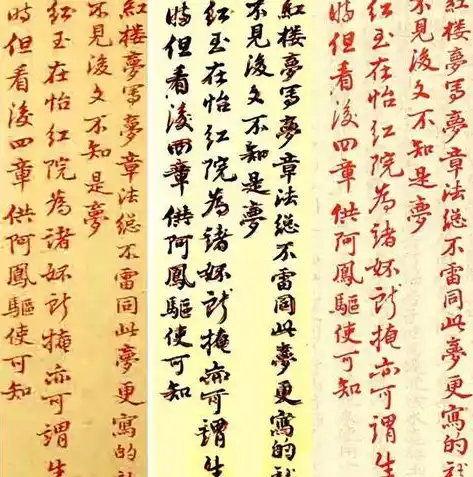 紅楼夢写夢章法總不雷同此夢更寫的
不見後文不知是夢
红玉在怡红院為諸嬛所掩亦可謂生
時但看後四章供阿鳳驅使可知
紅楼夢写夢章法總不雷同此夢更寫的
不見後文不知是夢
红玉在怡红院為諸嬛所掩亦可謂生
時但看後四章供阿鳳驅使可知
紅楼夢写夢章法總不雷同此夢更寫的
不見後文不知是夢
红玉在怡红院為諸嬛所掩亦可謂生
時但看後四章供阿鳳驅使可知